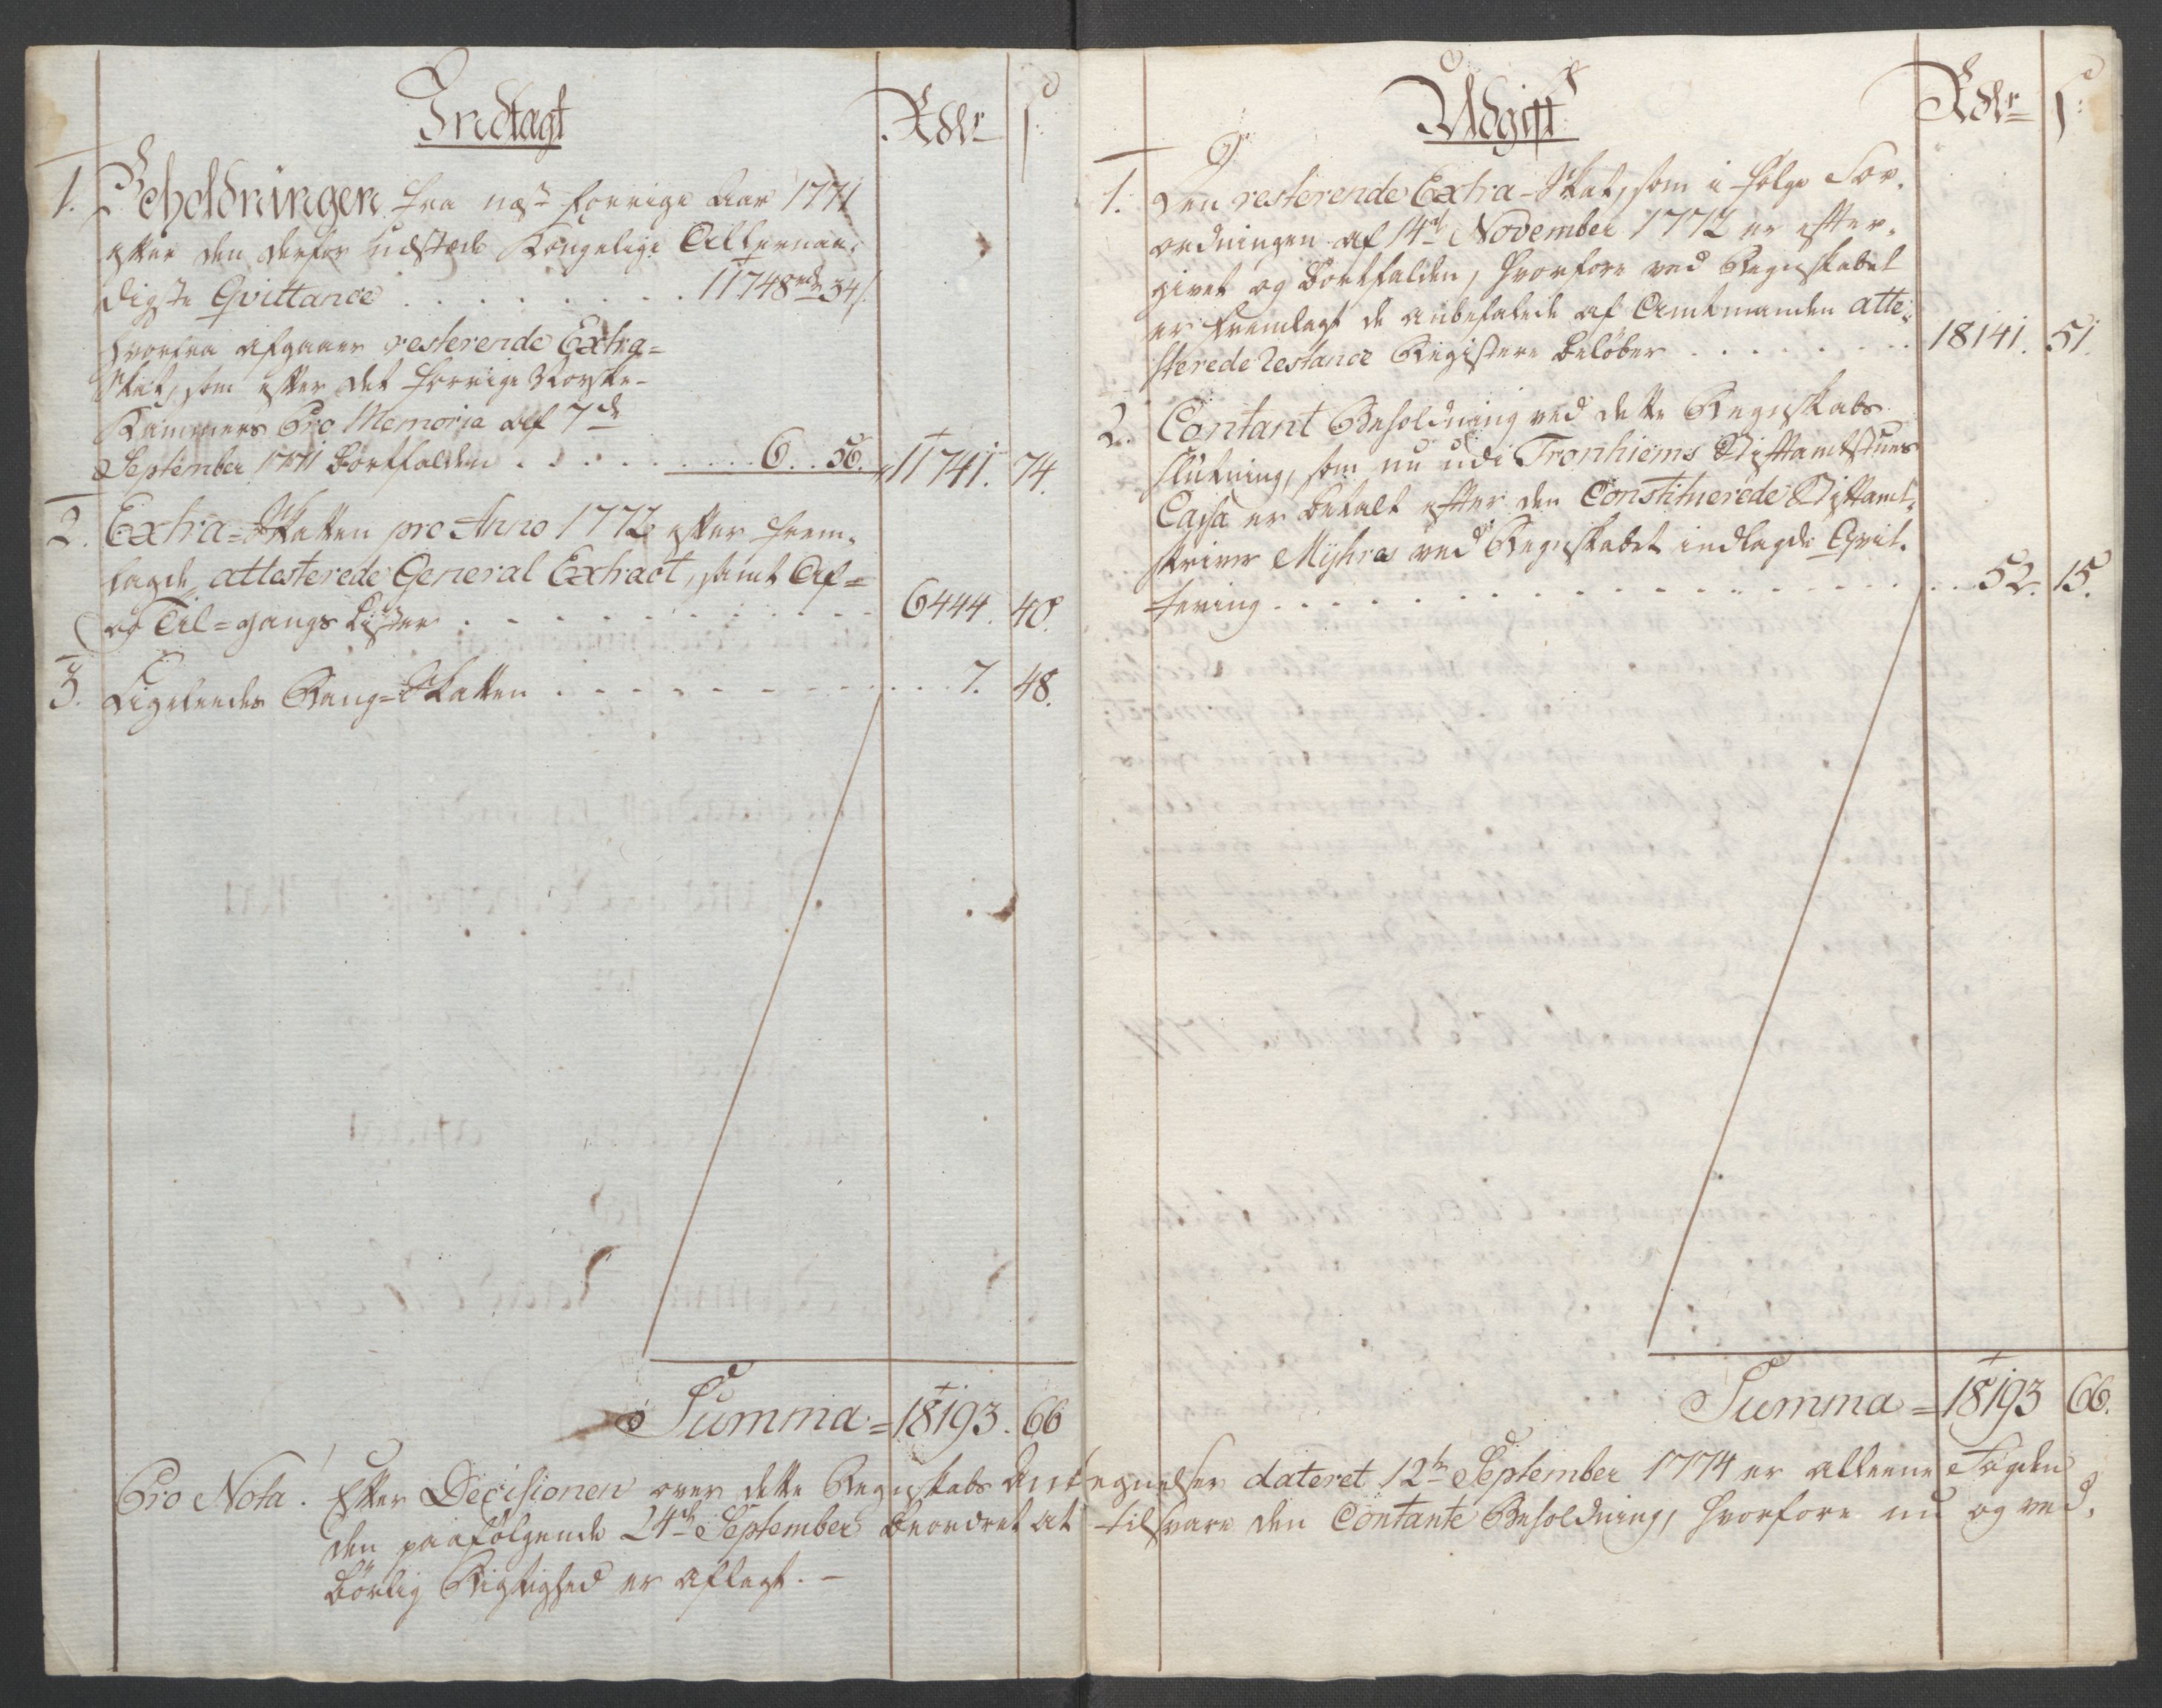 Indtægt
Rdlr
s:
1. Beholdningen fra næst forrige Aar 1771
efter den derfor udstæde Kongelige Allernaa-
digste Qvittance . . . . . . . . 11748 rd 34 s.
hvorfra afgaaer resterende Extra-
Skat, som efter det forrige Norske
Kammers Pro Memoria af 7de
September 1771 bortfalden . . . . . . 6. 56. 11741. 74.
2. Extra-Skatten pro Anno 1772 efter frem-
lagde attesterede General Extract, samt Af-
og Til-gangs Lister . . . . . . . 6444. 40.
3. Ligeleedes Rang-Skatten . . . . . . . 7. 48.
Summa = 18193. 66
Udgift
Rdlr
s:
1. Den resterende Extra-Skat, som i følge For-
ordningen af 14de November 1772 er efter-
givet og bortfalden, hvorfore ved Regnskabet
er fremlagt de anbefalede af Amtmanden atte-
sterede Restance Registere beløber . . . . . . 18141. 51.
2. Contant Beholdning ved dette Regnskabs
slutning, som nu udi Tronhiems Stiftamtstues
Cassa er betalt efter den Constituerede Stiftamt-
skriver Myhres ved Regnskabet indlagde Qvit-
tering . . . . . . . . . 52. 15.
Summa = 18193 66.
Pro Nota. Efter Decisionen over dette Regnskabs Antegnelser dateret 12te September 1774 er alleene Fogden
den paafølgende 24de September beordret at tilsvare den Contante Beholdning, hvorfore nu og ved-
børlig Rigtighed er aflagt. -